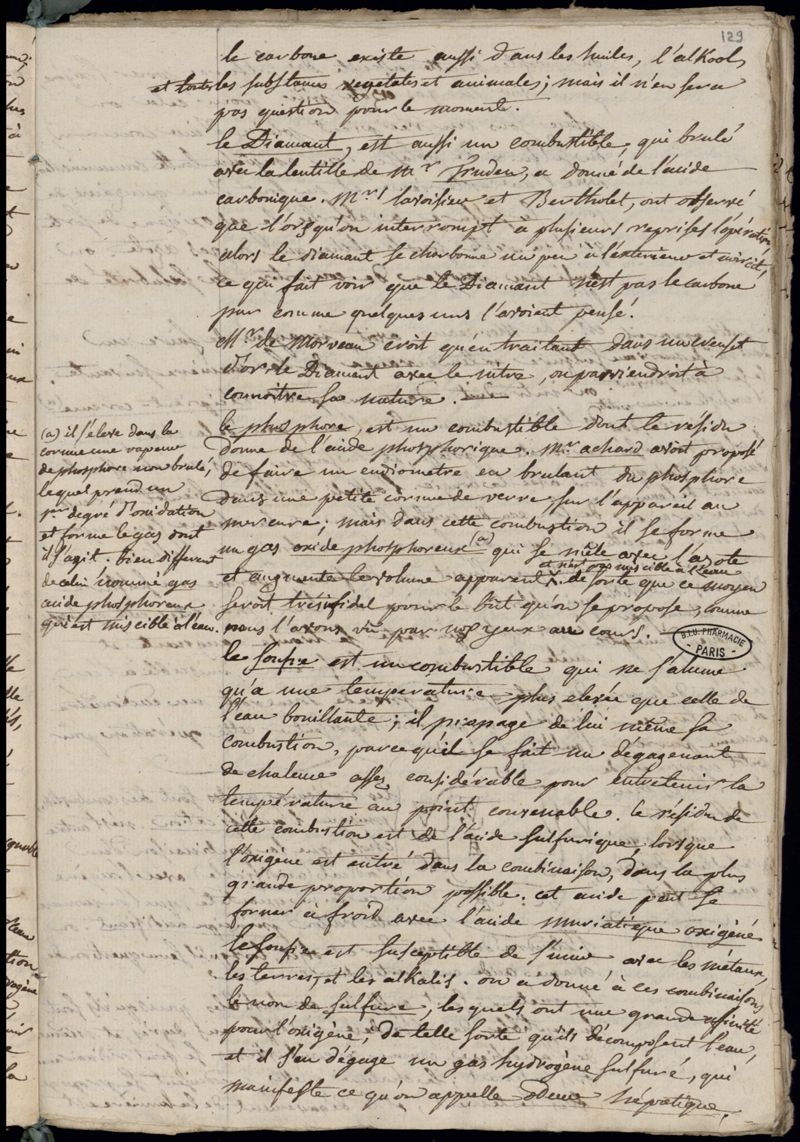 129
le carbone existe aussi dans les huiles, l'alkool,
et toutes les substances vegetales et animales; mais il n'en sera
pas question pour le moment.
le Diamant, est aussi un combustible, qui brulé
avec la lentille de Mr. Trudon, a donné de l'acide
carbonique. Mrs. lavoisier et Bertholet, ont observé
que l'orsqu'on interrompt à plusieurs reprises l'opération,
alors le diamant se charbonne un peu à l'exterieur et noircit,
ce qui fait voir que le Diamant n'est pas le carbone
pur comme quelques uns l'avoient pensé.
Mr. de Morveau croit qu'en traitant dans un creuset
d'or le Diamant avec le nitre, on parviendroit à
connoitre sa nature.
le phosphore, est un combustible dont le résidu
donne de l'acide phosphorique. Mr. achard avoit proposé
de faire un eudiometre en brulant du phosphore
dans une petite cornue de verre sur l'appareil au
mercure; mais dans cette combustion il se forme
un gas oxide phosphoreux (a) qui se mêle avec l'azote
et n'est pas miscible à l'eau
et augmente le volume apparent, de sorte que ce moyen
seroit très infidel pour le but qu'on se propose, comme
nous l'avons vu par nos yeux au cours.
(a) il s'éleve dans la
cornue une vapeur
de phosphore non brulé,
lequel prend un
1er degré d'oxidation
et forme le gas dont
il s'agit. bien different
de celui nommé gas
acide phosphoreux
qui est miscible à l'eau.
B.I.U. PHARMACIE
PARIS
le soufre est un combustible qui ne s'alume
qu'a une temperature plus elevée que celle de
l'eau bouillante; il propage de lui même sa
combustion, parce qu'il se fait un dégagement
de chaleur assez considérable pour entretenir la
température au point convenable. le résidu de
cette combustion est de l'acide sulfurique, lorsque
l'oxigène est entré dans la combinaison, dans la plus
grande proportion possible. cet acide peut se
former à froid avec l'acide muriatique oxigéné
le soufre est susceptible de s'unir avec les métaux,
les terres, et les alkalis. on a donné à ces combinaisons
le nom de sulfure, lesquels ont une grande affinité
pour l'oxigène, de telle sorte qu'ils décomposent l'eau,
et il s'en dégage un gas hydrogène sulfuré, qui
manifeste ce qu'on appelle odeur hépatique.